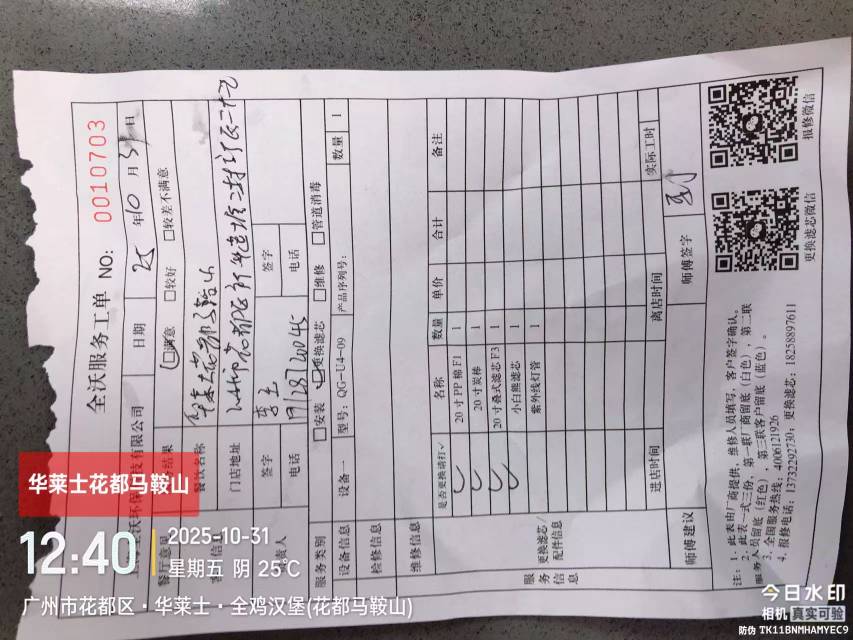 全沃服务工单 NO: 0010703
沃环保
技有限公司 日期 25 年 10 月 31 日
餐厅意见
满意 □较好 □较差不满意
餐饮名称 华莱士花都马鞍山
门店地址
签字 李 签字
电话 电话
服务类别 □安装 更换滤芯 □维修 □管道消毒
设备信息 设备一 型号: QG-U4-09 产品序列号: 数量 1
检修信息
维修信息
服务信息
更换滤芯/配件信息
是否更换请打✓ 名称 数量 单价 合计 备注
✓ 20寸PP棉F1 1
✓ 20寸炭棒 1
✓ 20寸叠式滤芯F3 1
✓ 小白熊滤芯 1
紫外线灯管 1
进店时间 离店时间 实际工时
师傅建议 师傅签字
注: 1. 此表由厂商提供, 维修人员填写, 客户签字确认。
2. 此表一式三份, 第一联厂商留底(白色), 第二联
服务人员留底(红色), 第三联客户留底(蓝色)。
3. 全国服务热线: 4006121926
4. 报修电话: 13732292730; 更换滤芯: 18258897611
更换滤芯微信 报修微信
华莱士花都马鞍山
12:40
2025-10-31
星期五 阴 25°C
广州市花都区·华莱士·全鸡汉堡(花都马鞍山)
今日水印
相机 真实可验
防伪 TK11BNMHAMYEC9